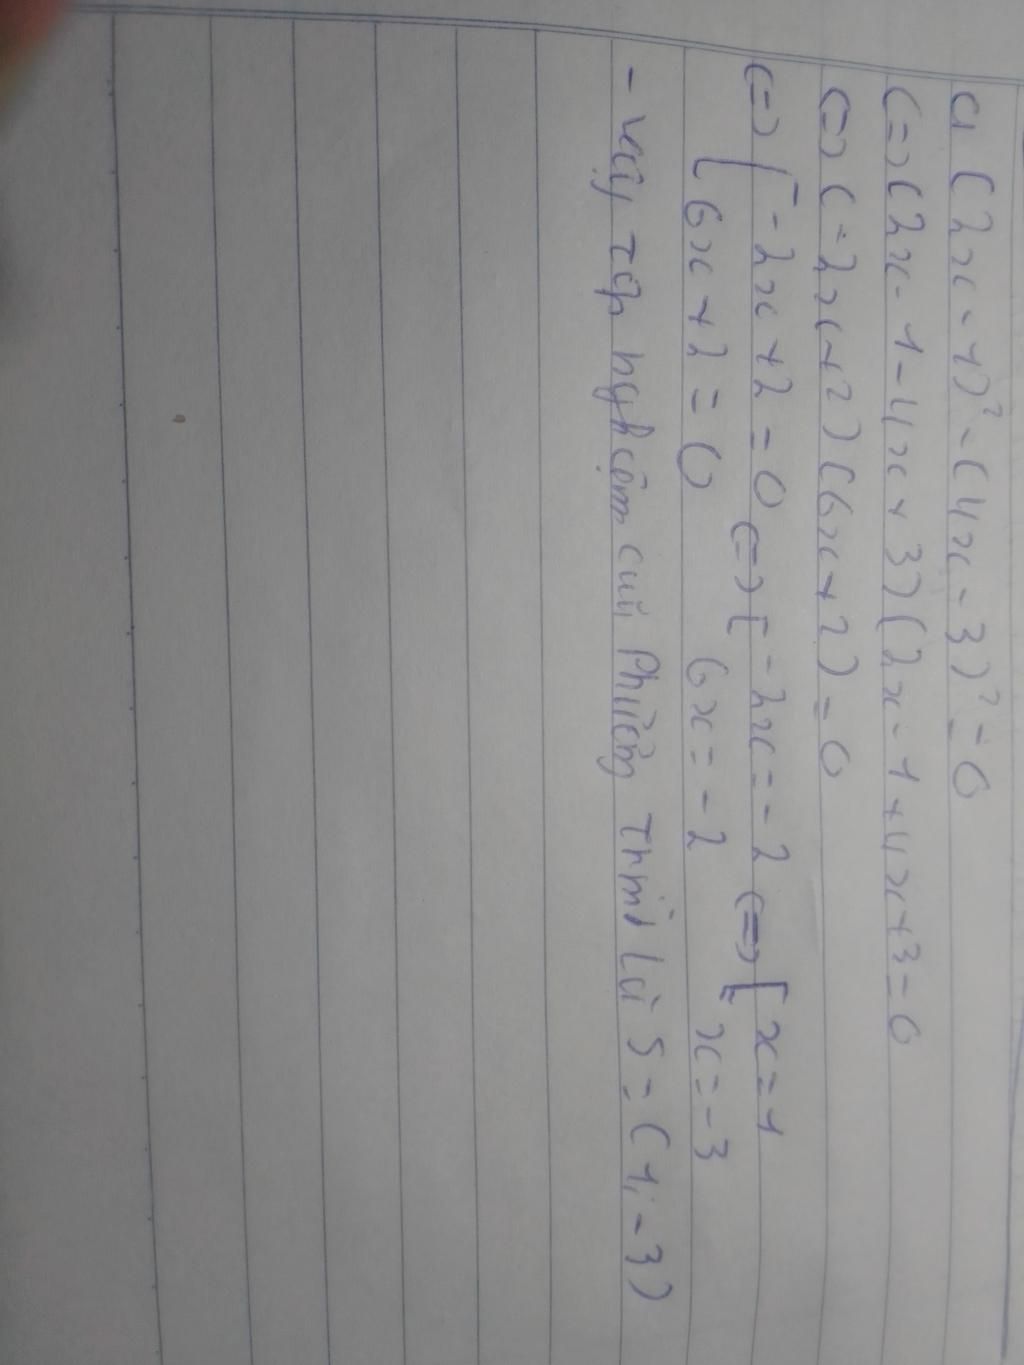 a (2x - 1)² - (4x - 3)² = 0
(=) (2x - 1 - 4x + 3) (2x - 1 + 4x + 3 = 0
(=) (-2x + 2) (6x + 2) = 0
(=) [ -2x + 2 = 0 (=) [ -2x = -2 (=) [ x = 1
6x + 2 = 0 6x = -2 x = -3
- vậy tập nghiệm của Phương trình là S = (1; -3)